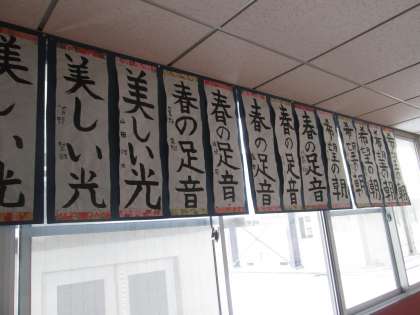 美しい光
美しい光
美しい光
春の足音
春の足音
春の足音
春の足音
春の足音
希望の朝
希望の朝
希望の朝
希望の朝